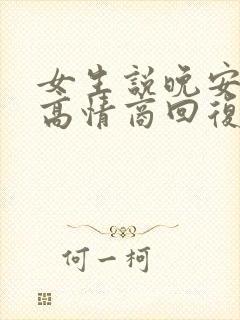 女生說晚安
高情商回復
何一柯